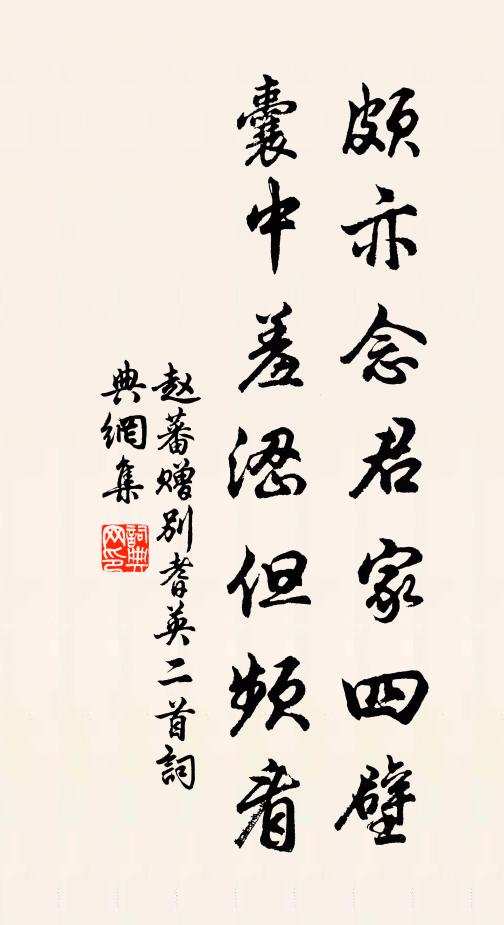 頗亦念君家四壁
囊中羞澀但頻看
赵蕃赠别耆英二首詞
典網集
詞典
网印